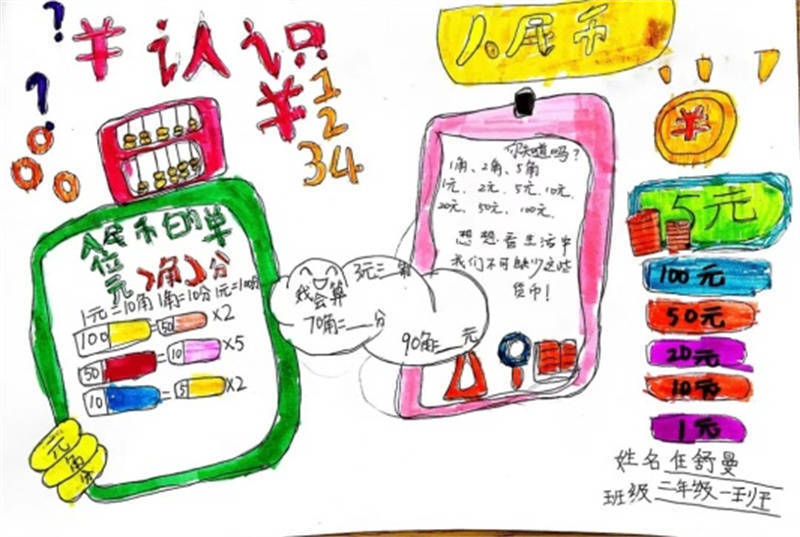 ? ?
¥认识
¥1
2
34
人民币
¥
人民币的单
位
元、角、分
1元=10角 1角=10分 1元=100分
100=50×2
50=10×5
10=5×2
元
角
分
我
会算
3元=__角
70角=__分
90角=__元
你知道吗?
1角、2角、5角
1元、2元、5元、10元、
20元、50元、100元、
想想看生活中
我们不可缺少这些
货币!
5元
100元
50元
20元
10元
1元
姓名 任舒曼
班级 二年级一班